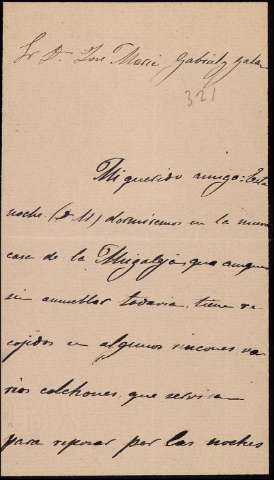 Sr. Dn. José María Gabriel y Galán
321
Mi querido amigo: Esta
noche (D 11) dormiremos en la nueva
casa de la Migaleja, que aunque
sin amueblar todavia, tiene re
cojidos en algunos rincones va
rios colchones, que serviran
para reposar por las noches